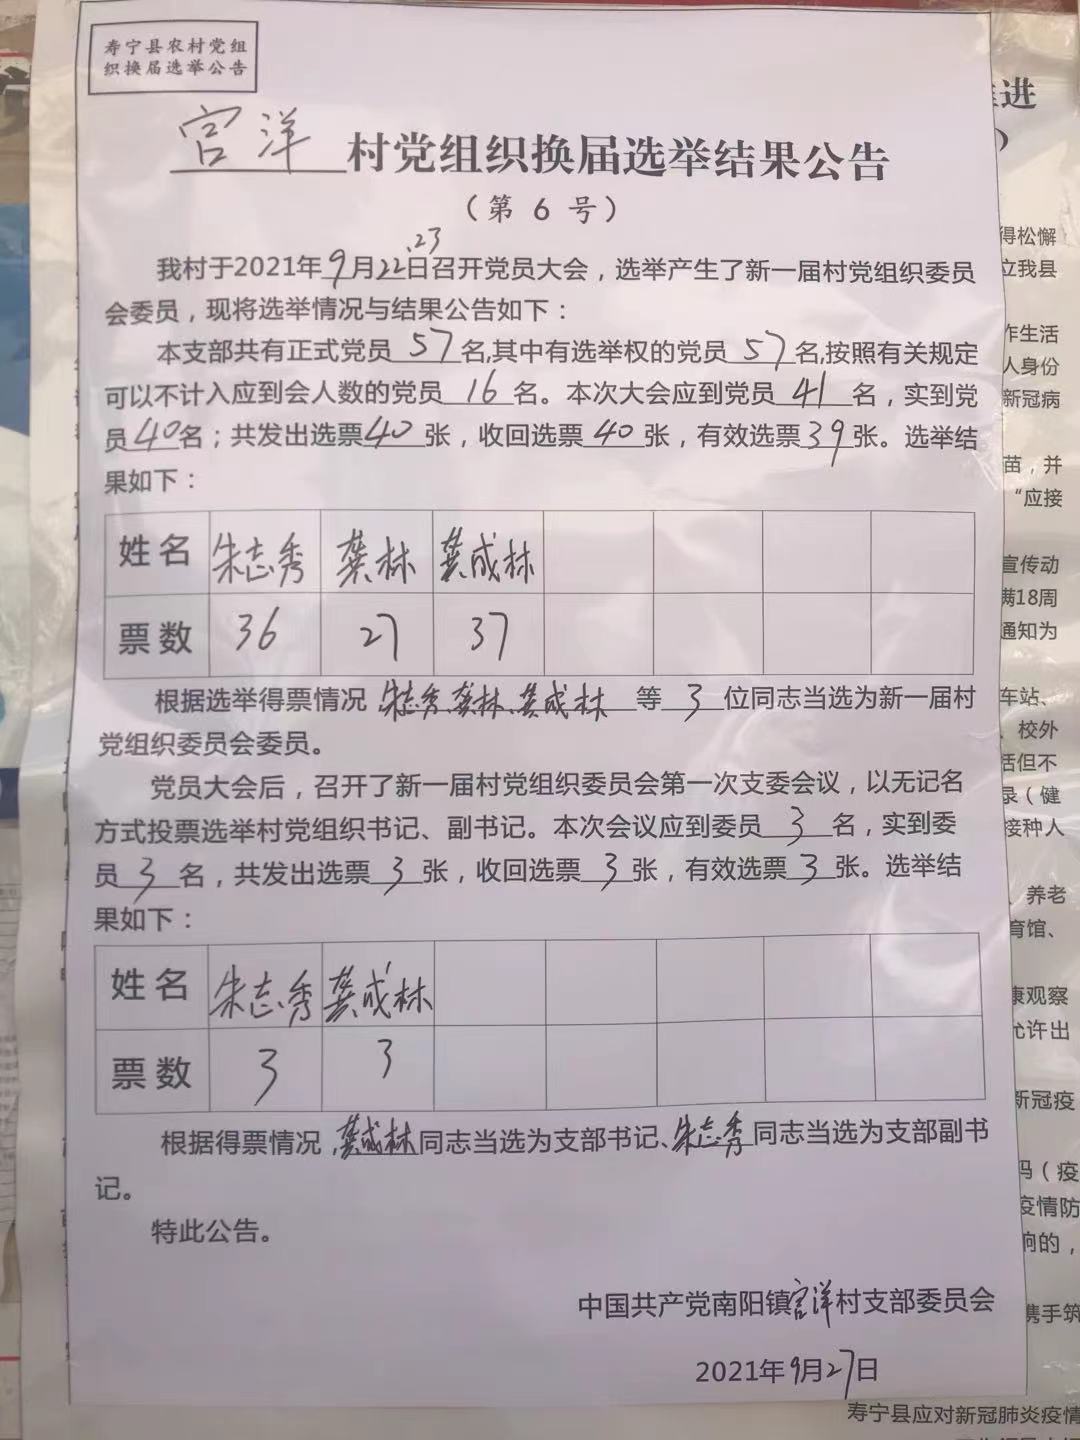 寿宁县农村党组
织换届选举公告
官洋村党组织换届选举结果公告
（第 6 号）
我村于2021年9月22、23日召开党员大会，选举产生了新一届村党组织委员
会委员，现将选举情况与结果公告如下：
本支部共有正式党员57名,其中有选举权的党员57名,按照有关规定
可以不计入应到会人数的党员16名。本次大会应到党员41名，实到党
员40名；共发出选票40张，收回选票40张，有效选票39张。选举结
果如下：
姓名 朱志秀 龚林 龚成林
票数 36 27 37
根据选举得票情况朱志秀、龚林、龚成林等3位同志当选为新一届村
党组织委员会委员。
党员大会后，召开了新一届村党组织委员会第一次支委会议，以无记名
方式投票选举村党组织书记、副书记。本次会议应到委员3名，实到委
员3名，共发出选票3张，收回选票3张，有效选票3张。选举结
果如下：
姓名 朱志秀 龚成林
票数 3 3
根据得票情况，龚成林同志当选为支部书记、朱志秀同志当选为支部副书
记。
特此公告。
中国共产党南阳镇官洋村支部委员会
2021年9月27日
进
）
得松懈
立我县
作生活
人身份
新冠病
苗，并
“应接
宣传动
满18周
通知为
车站、
、校外
活但不
录（健
接种人
、养老
育馆、
康观察
允许出
新冠疫
码（疫
疫情防
响的，
携手筑
寿宁县应对新冠肺炎疫情